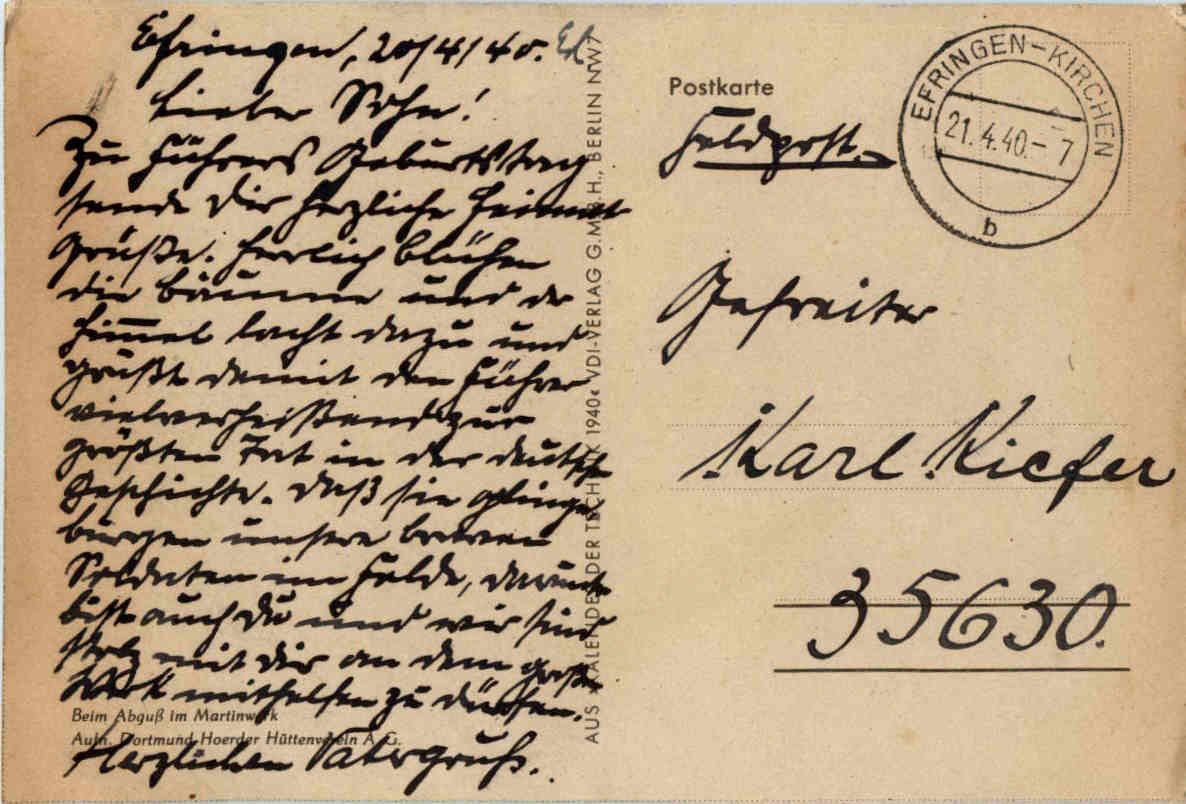 Efringen, 20/4/40.
Lieber Sohn!
Zu Führers Geburtstag
sende Dir herzliche Heimat
Grüße. Herrlich blühen
die Bäume und der
Himmel lacht dazu und
grüßt damit den Führer
vielverheißend zur
größten Tat in der deutsche
Geschichte. Daß sie gelinge
bürgen unsere braven
Soldaten im Felde, darunte
bist auch Du und wir sind
stolz mit Dir an dem große
Werk mithelfen zu dürfen.
Herzlichen Vatergruß.
Beim Abguß im Martinwerk
Aufn. Dortmund-Hoerder Hüttenverein A.G.
AUS »KALENDER DER TECHNIK 1940« VDI-VERLAG G.M.B.H., BERLIN NW7
Postkarte
Feldpost.
EFRINGEN-KIRCHEN
21.4.40.-7
b
Gefreiter
Karl Kiefer
35630.